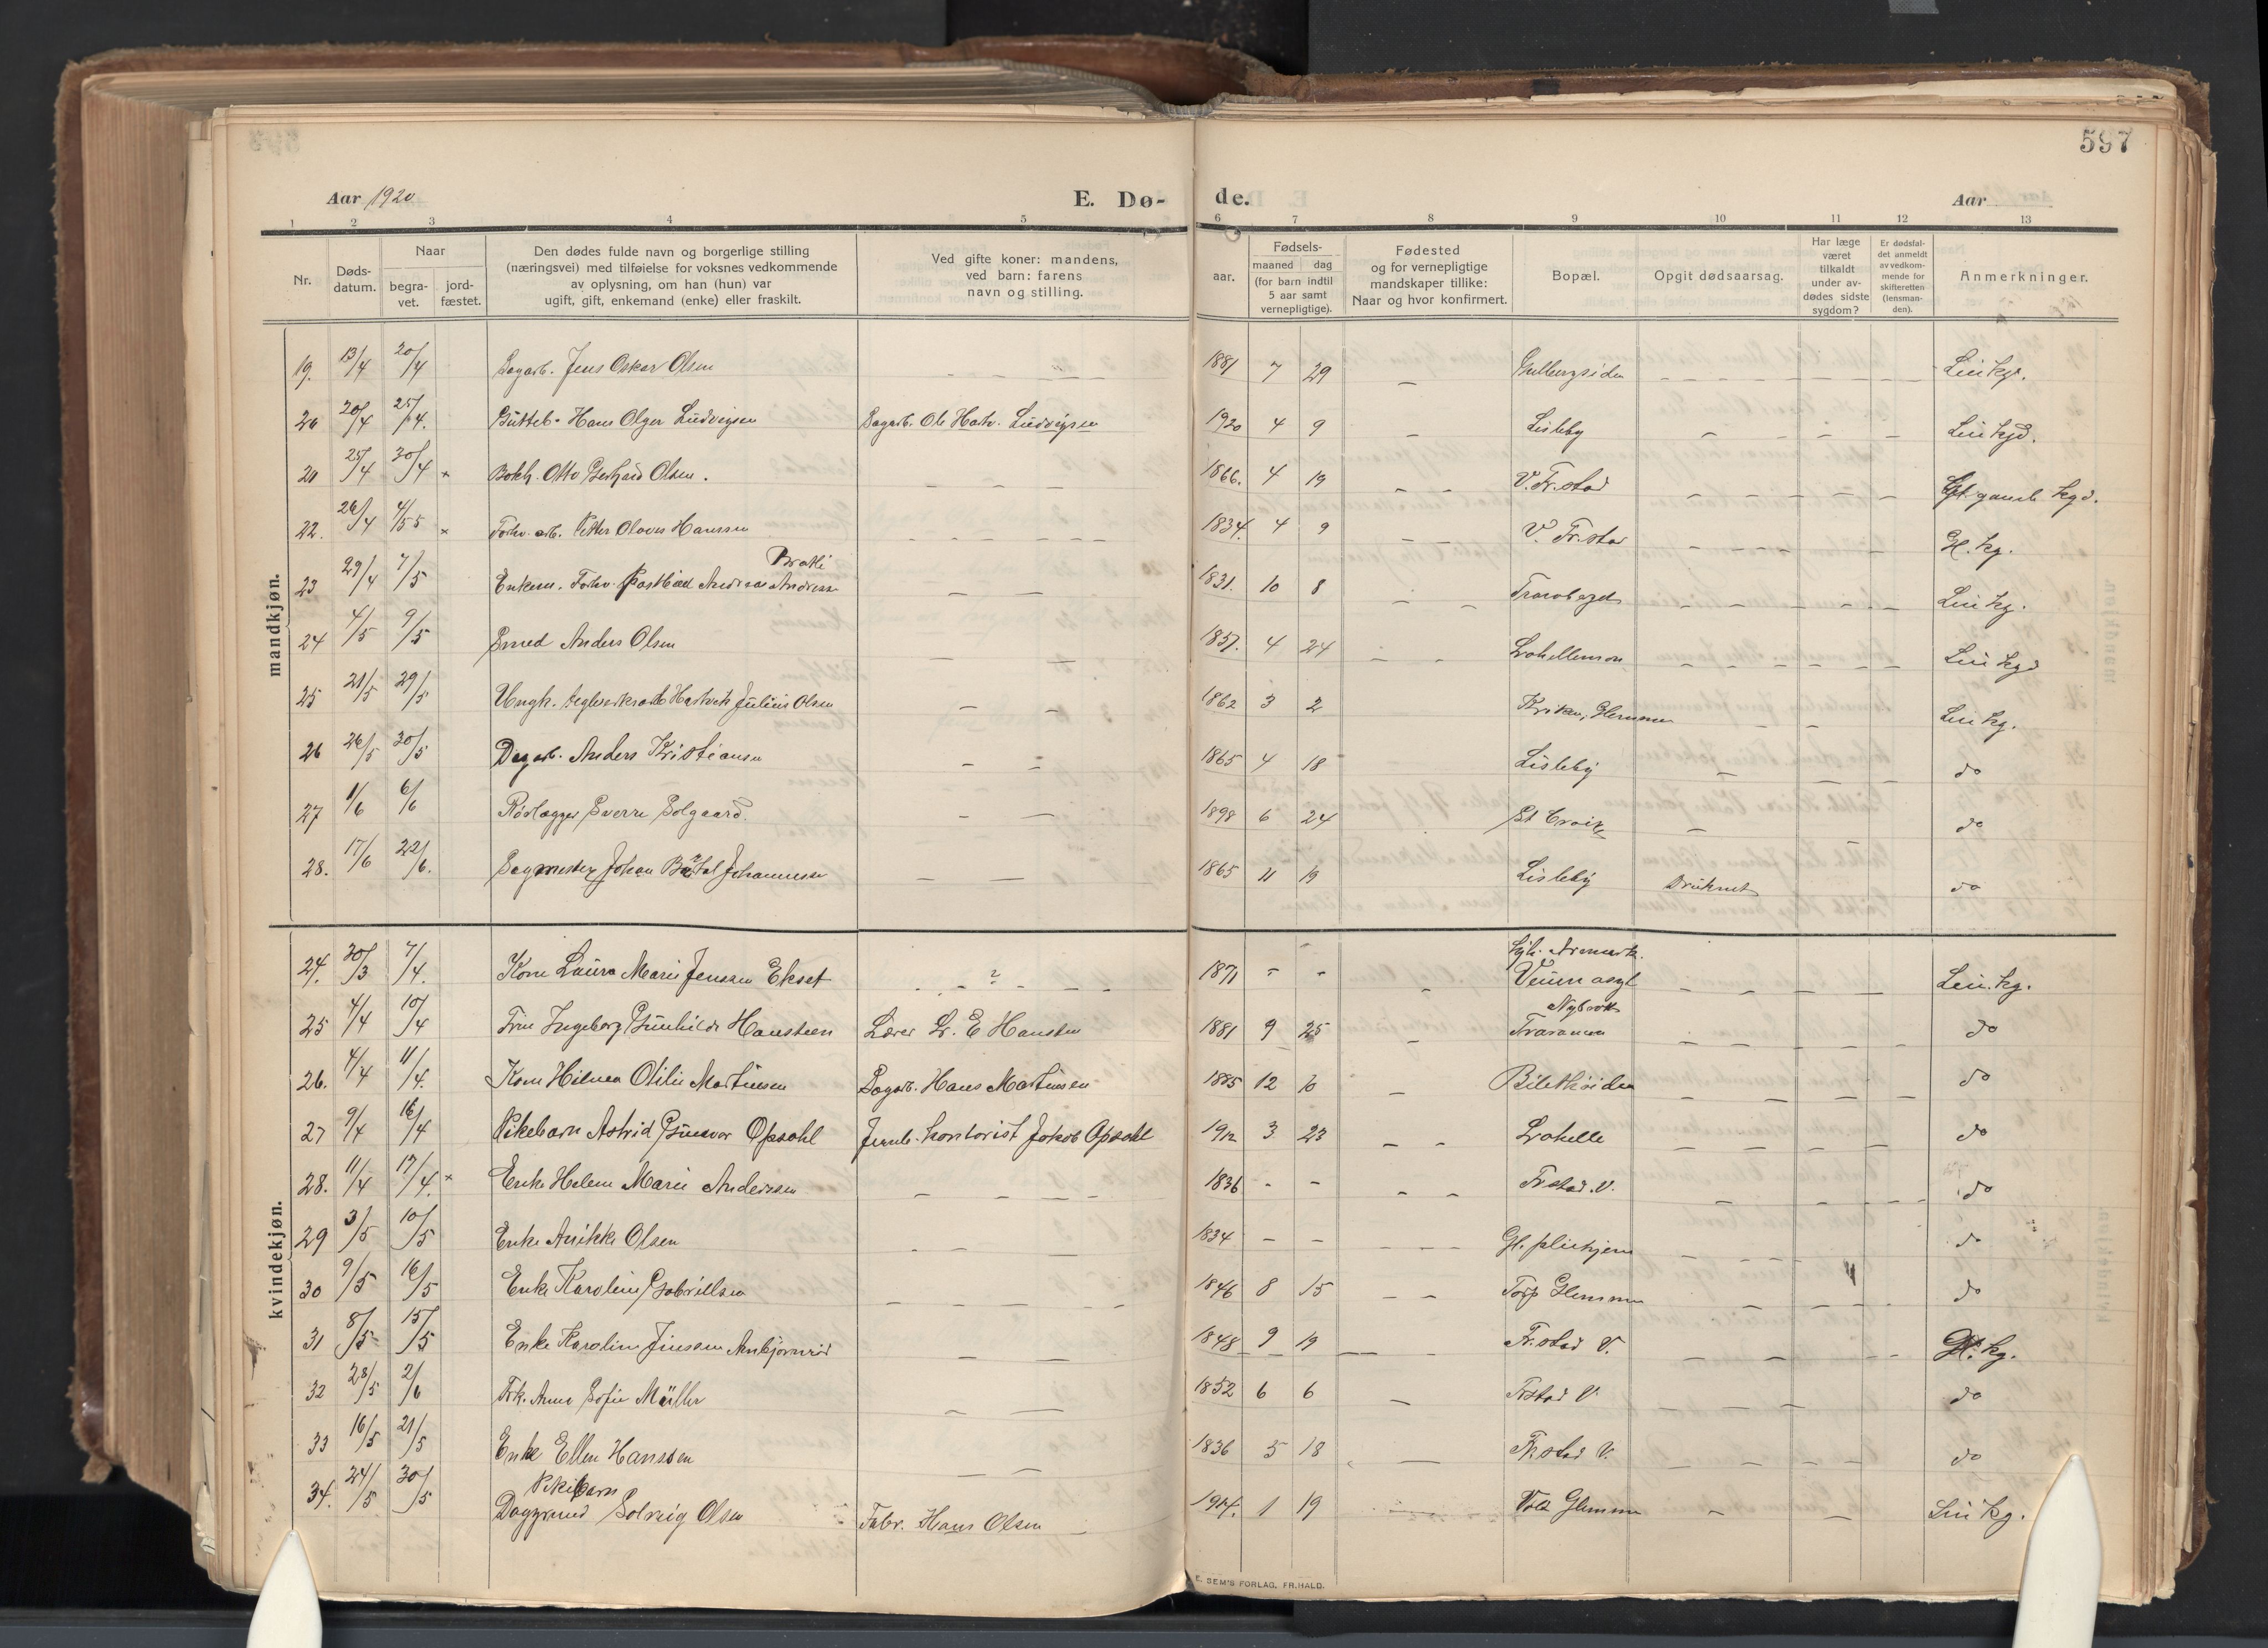 597
Aar 1920
E. Dø-
de.
Aar
1 2 3 4 5 6 7 8 9 10 11 12 13
Nr.
Døds-
datum.
Naar
begra-
vet.
jord-
fæstet.
Den dødes fulde navn og borgerlige stilling
(næringsvei) med tilføielse for voksnes vedkommende
av oplysning, om han (hun) var
ugift, gift, enkemand (enke) eller fraskilt.
Ved gifte koner: mandens,
ved barn: farens
navn og stilling.
aar.
Fødsels-
maaned dag
(for barn indtil
5 aar samt
vernepligtige).
Fødested
og for vernepligtige
mandskaper tillike:
Naar og hvor konfirmert.
Bopæl.
Opgit dødsaarsag.
Har læge
været
tilkaldt
under av-
dødes sidste
sygdom?
Er dødsfal-
det anmeldt
av vedkom-
mende for
skifteretten
(lensman-
den).
Anmerkninger.
mandkjøn.
19. 13/4 20/4 Dagarb. Jens Oskar Olsen - - - 1881 7 29 - Lei kgd.
20 20/4 25/4. Gutteb. Hans Olger Ludvigsen Dagarb. Ole Ludvigsen 1920 4 9 - Lisleby - - - - Lei kgd.
21 25/4 30/4 x Bokh. Otto Gerhard Olsen. - - - 1866. 4 19 - - V. Fr.stad - - - - Gl. gamle kgd.
22. 26/4 4/5 x Forhv. arb. Petter Olaves Hanssen - - - 1834. 4 9 - - V. Fr.stad - - - - Gl. kg.
Brekke
23 29/4 7/5 Enkem. Forhv. Postbud Andreas Andresen - - 1831. 10 8 - - - - - - Lei kg.
24 4/5 9/5 Smed Anders Olsen - - 1857. 4 24 - - - - - - Lei kgd
25 21/5 29/5 Ungk. Julius Olsen - - 1862 3 2 Glemmen - - Lei kg.
26 26/5 30/5 Dagarb. Anders Kristiansen - - 1865 4 18 Lisleby - - - do
27 1/6 6/6 Rørlægger Sverre Solgaard. - - 1898 6 24 St Croix - - do
28. 17/6 22/6. Sagmester Johan Johannessen - - 1865 11 19 Lisleby Druknet do
kvindekjøn.
24. 30/3 7/4. Kone Laura Marie Jensen Ekset - ? - - 1871 - - - Veum asyl - - - - Lei. kg.
25 4/4 10/4 Fru Ingeborg Gunhilde Hansteen Lærer E Hansteen 1881 9 25 - Trara - - - - do
26. 4/4 11/4. Kone Hilma Otilie Martinsen Dagarb. Hans Martinsen 1885 12 10 - - - - - do
27 9/4 16/4 Pikebarn Astrid Gunvor Opsahl Jernb. kontorist Jakob Opsahl 1912 3 23 - - Lahelle - - - - do
28. 11/4 17/4. x Enke Helene Marie Andersen - - - 1836 - - - - Frstad. V. - - - - do
29 3/5 10/5 Enke Anikke Olsen - - - 1834 - - - - - Gl. pleiehjem - - - - do
30 9/5 16/5 Enke Karoline Gabrielsen - - - - - 1846 8 15 - - Torp Glemmen - - - - do
31 8/5 15/5 Enke Karoline Jensen Anbjørnrød - - 1848 9 19 - - - Fr.stad V. - - - - Gl. kg.
32 28/5 2/6 Frk. Anna Sofie Müller - - 1852 6 6 - Frstad V. - - - do
33 16/5 21/5 Enke Ellen Hanssen - - 1836 5 18 - Frstad V. - - - - do
Pikebarn
34. 24/5 30/5 Solveig Olsen Fabr. Hans Olsen 1914. 1 19 - Glemmen - - Lei kg.
E. SEM'S FORLAG, FR.HALD.